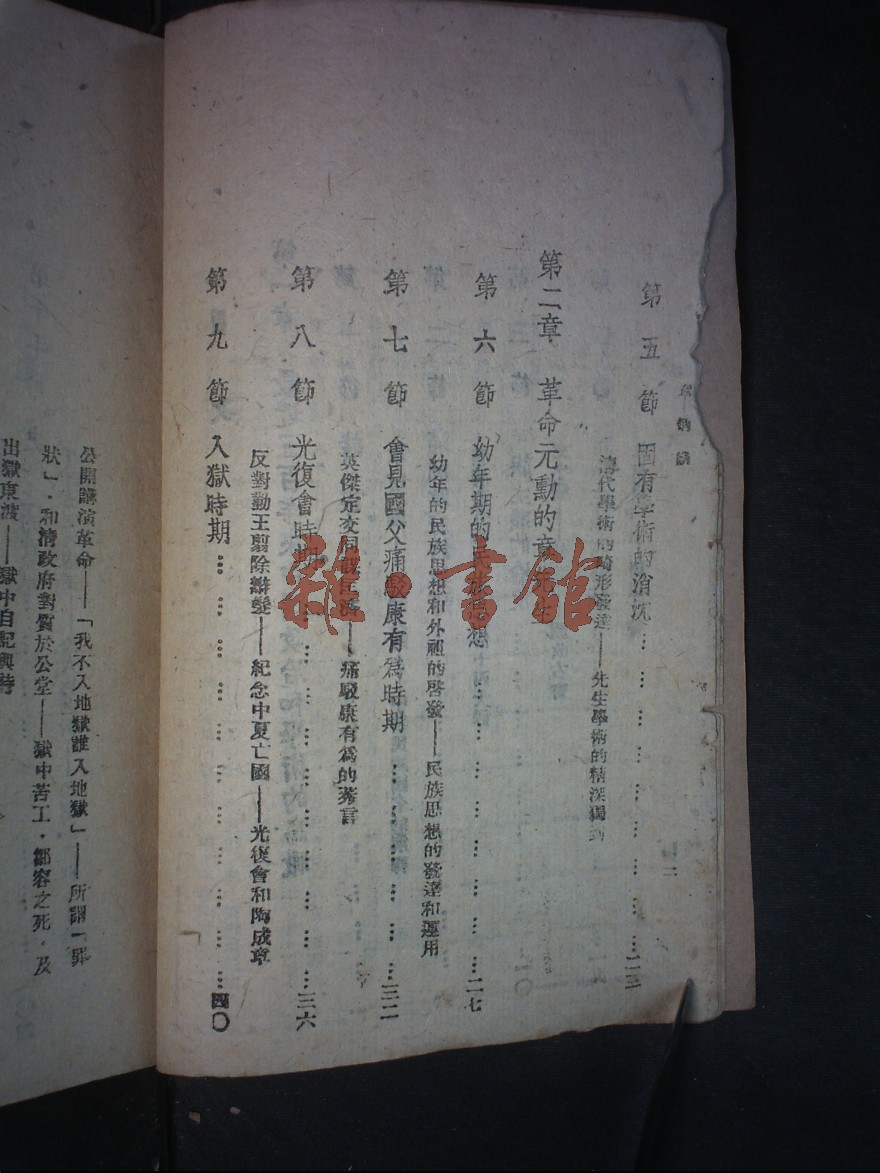 第五節 固有學術的消沈……………………二三
清代學術的畸形發達——先生學術的精深獨到
第二章 革命元勳的章先生
第六節 幼年期的民族思想……………………二七
幼年的民族思想和外祖的啓發——民族思想的發達和運用
第七節 會見國父痛駁康有爲時期……………………三二
英傑定交同 ——痛駁康有爲的莠言
第八節 光復會時期……………………三六
反對勤王翦除辮髮——紀念中夏亡國——光復會和陶成章
第九節 入獄時期……………………四〇
公開講演革命——「我不入地獄誰入地獄」——所謂「罪
狀」‧和清政府對質於公堂——獄中苦工‧鄒容之死‧及
出獄東渡——獄中自記與詩
雜·書館